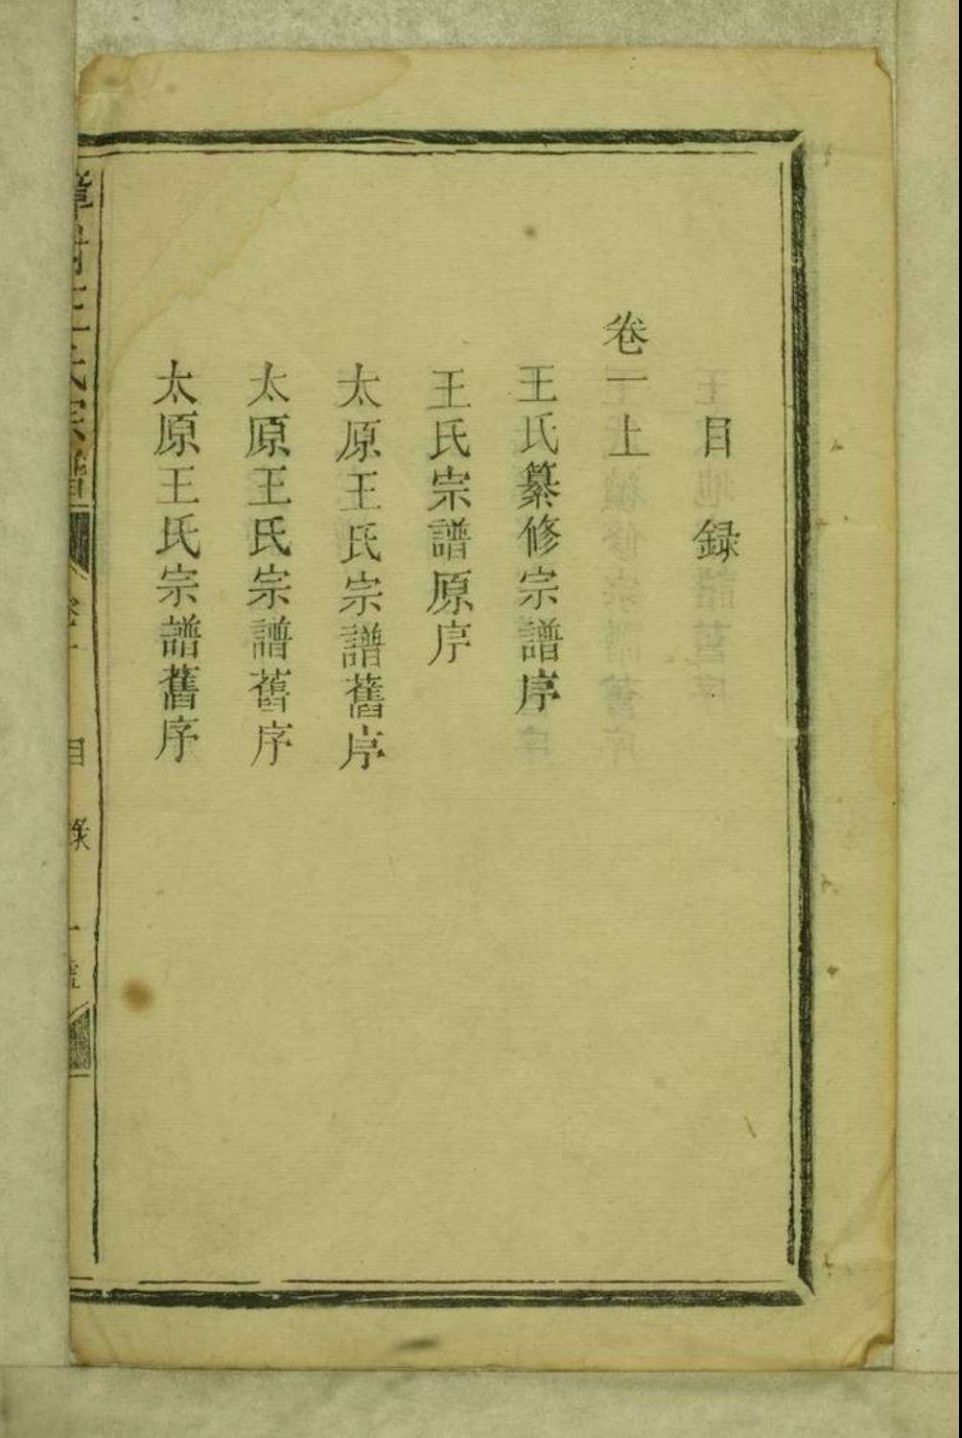 目錄
卷一上
王氏纂修宗譜序
王氏宗譜原序
太原王氏宗譜舊序
太原王氏宗譜舊序
太原王氏宗譜舊序
王氏宗譜
目錄
一